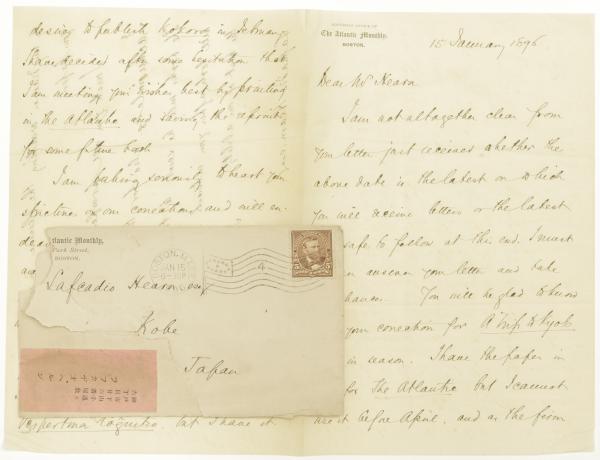 desires to publish Kokoro in February
I have decided after some hesitation that
I am meeting your wishes best by printing
in the Atlantic and saving the reprint
for some future book
I am taking seriously to heart your
strictures on our corrections and will en-
dea
15 January 1896
EDITORIAL OFFICE OF
The Atlantic Monthly,
BOSTON.
Dear Mr Hearn
I am not altogether clear from
your letter just received whether the
above date is the latest on which
you will receive letters or the latest
safe to follow at this end. I must
answer your letter and take
chances. You will be glad to know
your correction for A trip to Kyoto
in season. I have the paper in
for the Atlantic but I cannot
use it before April, and as the firm
tlantic Monthly,
Park Street,
BOSTON.
BOSTON, M
JAN 15
4
5
Lafcadio Hearn esq
Kobe
Japan
but I have it